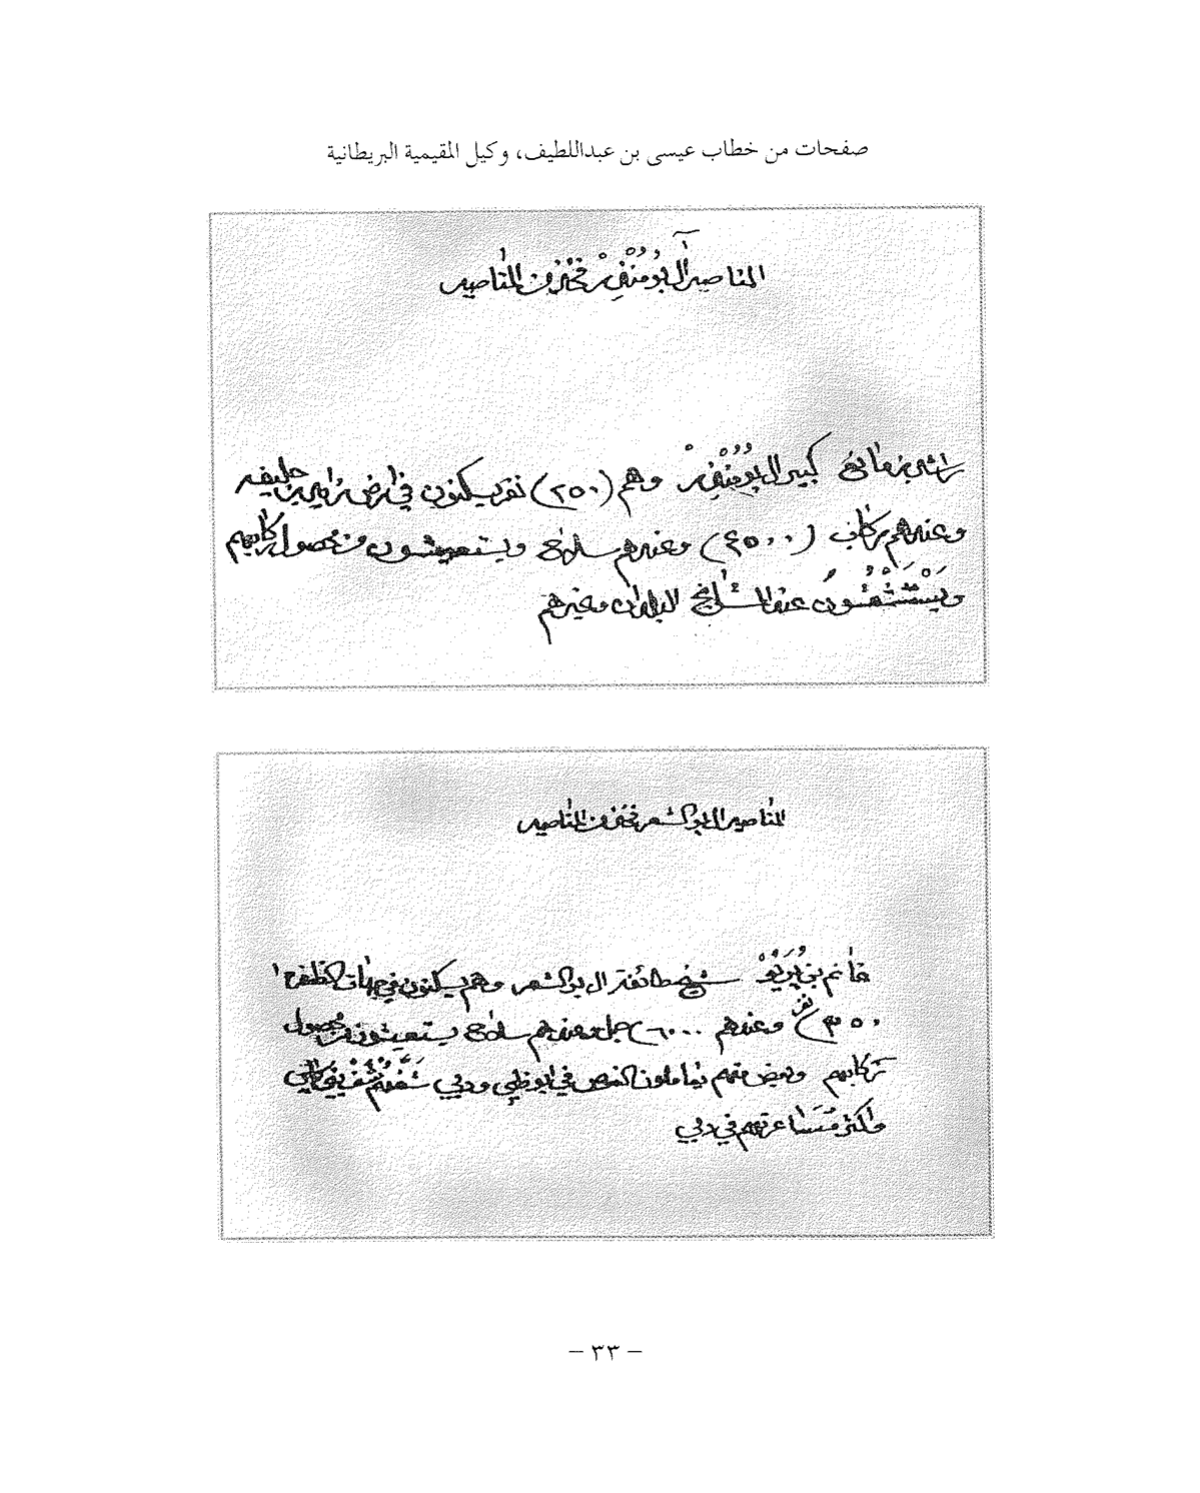 صفحات من خطاب عيسى بن عبداللطيف، وكيل المقيمية البريطانية
المناصير آل بُومُنْذِرْ فخذ من المناصير
راشد بن مانع كبير ال بومُنْذِرْ وهم (٢٥٠) نفر يسكنون في ارض زايد بن خليفه
وعندهم ركاب (٤٥٠٠) وعندهم سلاح ويستعيشون من محصول ركابهم
عند المشايخ البلدان وغيرهم
المناصير ال بو الشعر فخذ من المناصير
غانم بن شيخ طائفة ال بو الشعر وهم يسكنون في جهات الظفرة
٣٥٠ نفر وعندهم ٦٠٠٠ جمل وعندهم سلاح يستعيشون من محصول
ركابهم وبعض منهم يعاملون الغوص في ابوظبي ودبي
واكثر في دبي
– ٣٣ –